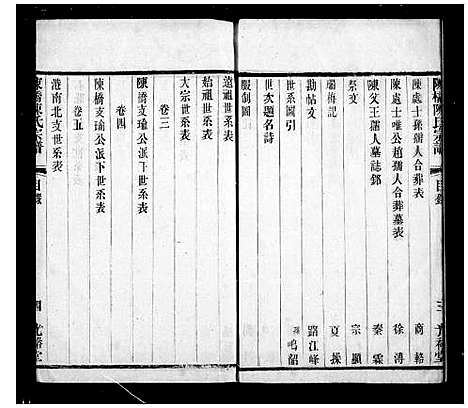 陳橋陳氏宗譜
目錄
三
陳處士孫孺人合葬表 商輅
陳處士唯公趙孺人合葬墓表 徐溥
陳父王孺人墓誌銘 秦霖
祭文 宗顯
廟梅記 夏採
勘帖文 路江峰
世系圖引 鳴韶
世次題名詩
服制圖
遠祖世系表
始祖世系表
大宗世系表
卷三
陳橋支瑜公派下世系表
卷四
陳橋支瑜公派下世系表
卷五
港南北支世系表
陳橋陳氏宗譜
目錄
四